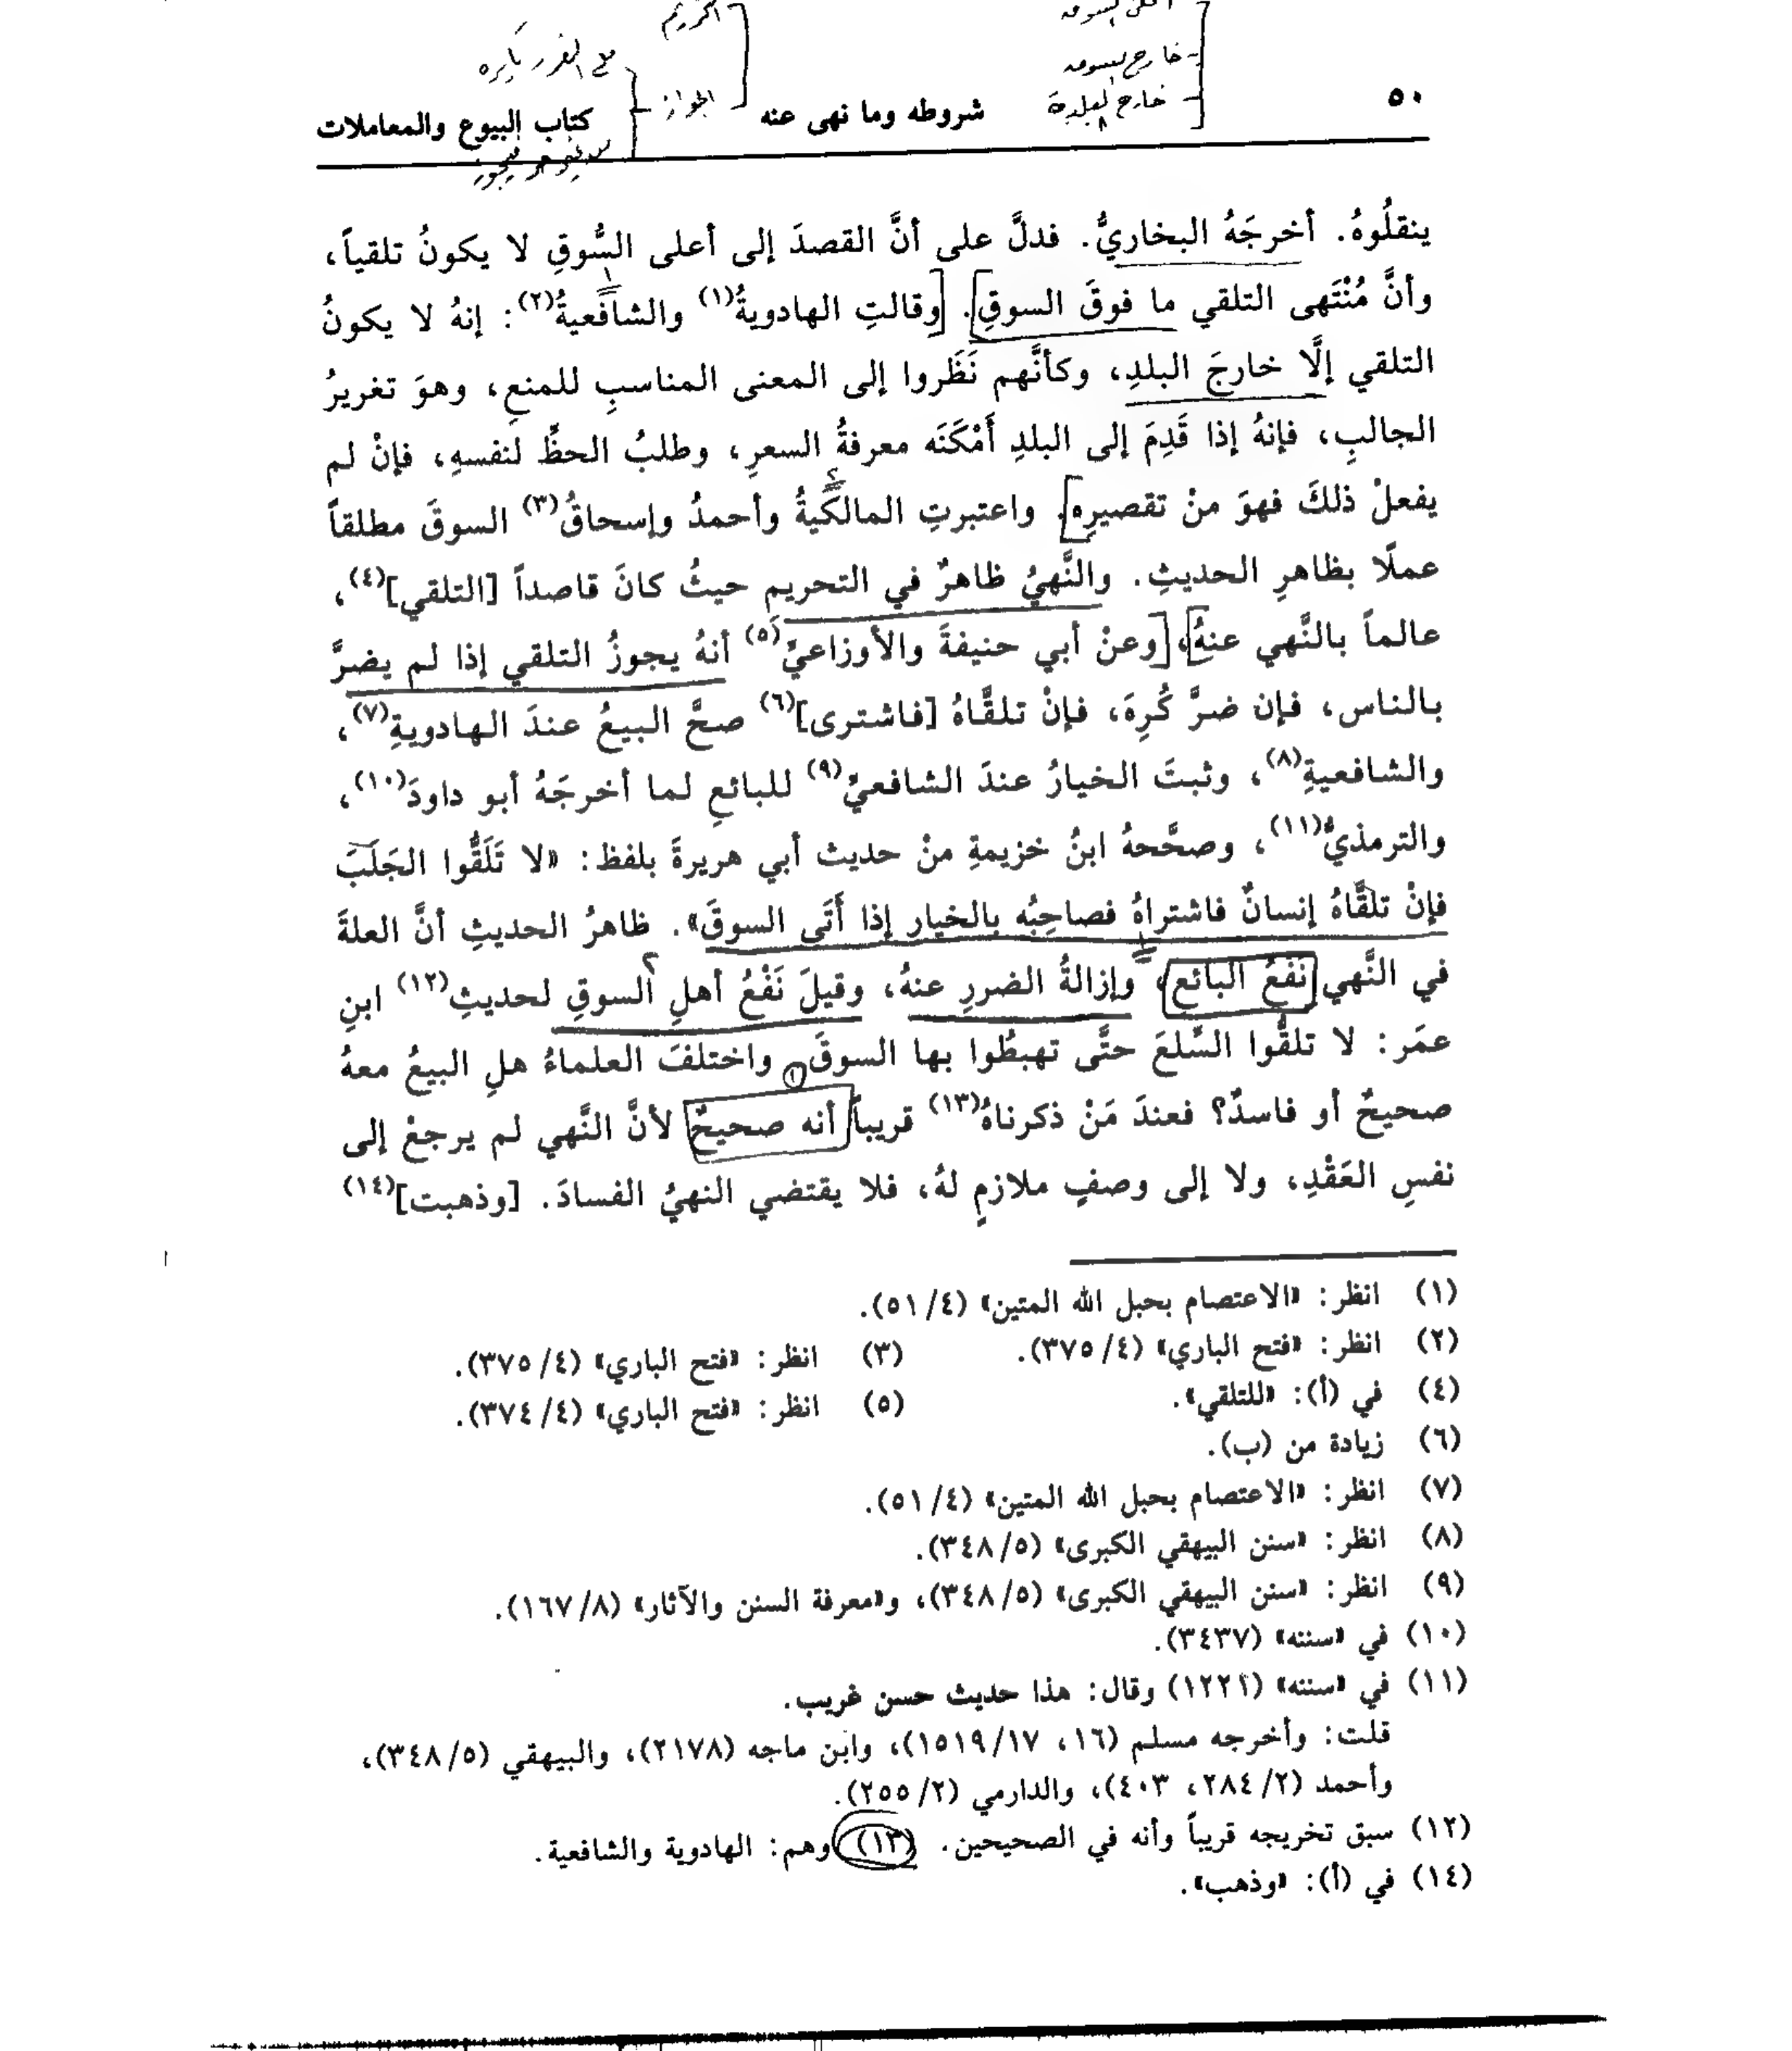 أعلى السوق
خارج السوق
خارج البلدة
التحريم
الجواز
مع الضرر يكره
٥٠ شروطه وما نهى عنه كتاب البيوع والمعاملات
ينقلُوهُ. أخرجَهُ البخاريُّ. فدلَّ على أنَّ القصدَ إلى أعلى السُّوقِ لا يكونُ تلقياً،
وأنَّ مُنْتَهى التلقي ما فوقَ السوقِ. وقالتِ الهادويةُ(١) والشافعيةُ(٢): إنهُ لا يكونُ
التلقي إلَّا خارجَ البلدِ، وكأنَّهم نَظَروا إلى المعنى المناسبِ للمنعِ، وهوَ تغريرُ
الجالبِ، فإنهُ إذا قَدِمَ إلى البلدِ أَمْكَنَه معرفةُ السعرِ، وطلبُ الحظِّ لنفسهِ، فإنْ لم
يفعلْ ذلكَ فهوَ منْ تقصيرِه. واعتبرتِ المالكيةُ وأحمدُ وإسحاقُ(٣) السوقَ مطلقاً
عملًا بظاهرِ الحديثِ. والنَّهيُ ظاهرٌ في التحريمِ حيثُ كانَ قاصداً [التلقي](٤)،
عالماً بالنَّهي عنهُ، وعنْ أبي حنيفةَ والأوزاعيِّ(٥) أنهُ يجوزُ التلقي إذا لم يضرَّ
بالناس، فإن ضرَّ كُرِهَ، فإنْ تلقَّاهُ [فاشترى](٦) صحَّ البيعُ عندَ الهادويةِ(٧)،
والشافعيةِ(٨)، وثبتَ الخيارُ عندَ الشافعيِّ(٩) للبائعِ لما أخرجَهُ أبو داودَ(١٠)،
والترمذيُّ(١١)، وصحَّحهُ ابنُ خزيمةِ منْ حديث أبي هريرةَ بلفظ: «لا تَلَقُّوا الجَلَبَ
فإنْ تلقَّاهُ إنسانٌ فاشتراهُ فصاحِبُه بالخيارِ إذا أَتَى السوقَ». ظاهرُ الحديثِ أنَّ العلةَ
في النَّهي نَفْعُ البائعِ، وإزالةُ الضررِ عنهُ، وقيلَ نَفْعُ أهلِ السوقِ لحديثِ(١٢) ابنِ
عمَر: لا تلقُّوا السِّلعَ حتَّى تهبطُوا بها السوقَ واختلفَ العلماءُ هلِ البيعُ معهُ
صحيحٌ أو فاسدٌ؟ فعندَ مَنْ ذكرناهُ(١٣) قريباً أنه صحيحٌ لأنَّ النَّهي لم يرجعْ إلى
نفسِ العَقْدِ، ولا إلى وصفٍ ملازمٍ لهُ، فلا يقتضي النهيُ الفسادَ. [وذهبت](١٤)
(١) انظر: «الاعتصام بحبل الله المتين» (٤/ ٥١).
(٢) انظر: «فتح الباري» (٤/ ٣٧٥). (٣) انظر: «فتح الباري» (٤/ ٣٧٥).
(٤) في (أ): «للتلقي». (٥) انظر: «فتح الباري» (٤/ ٣٧٤).
(٦) زيادة من (ب).
(٧) انظر: «الاعتصام بحبل الله المتين» (٤/ ٥١).
(٨) انظر: «سنن البيهقي الكبرى» (٥/ ٣٤٨).
(٩) انظر: «سنن البيهقي الكبرى» (٥/ ٣٤٨)، و«معرفة السنن والآثار» (٨/ ١٦٧).
(١٠) في «سننه» (٣٤٣٧).
(١١) في «سننه» (١٢٢١) وقال: هذا حديث حسن غريب.
قلت: وأخرجه مسلم (١٦، ١٥١٩/١٧)، وابن ماجه (٢١٧٨)، والبيهقي (٥/ ٣٤٨)،
وأحمد (٢/ ٢٨٤، ٤٠٣)، والدارمي (٢/ ٢٥٥).
(١٢) سبق تخريجه قريباً وأنه في الصحيحين. (١٣) وهم: الهادوية والشافعية.
(١٤) في (أ): «وذهب».